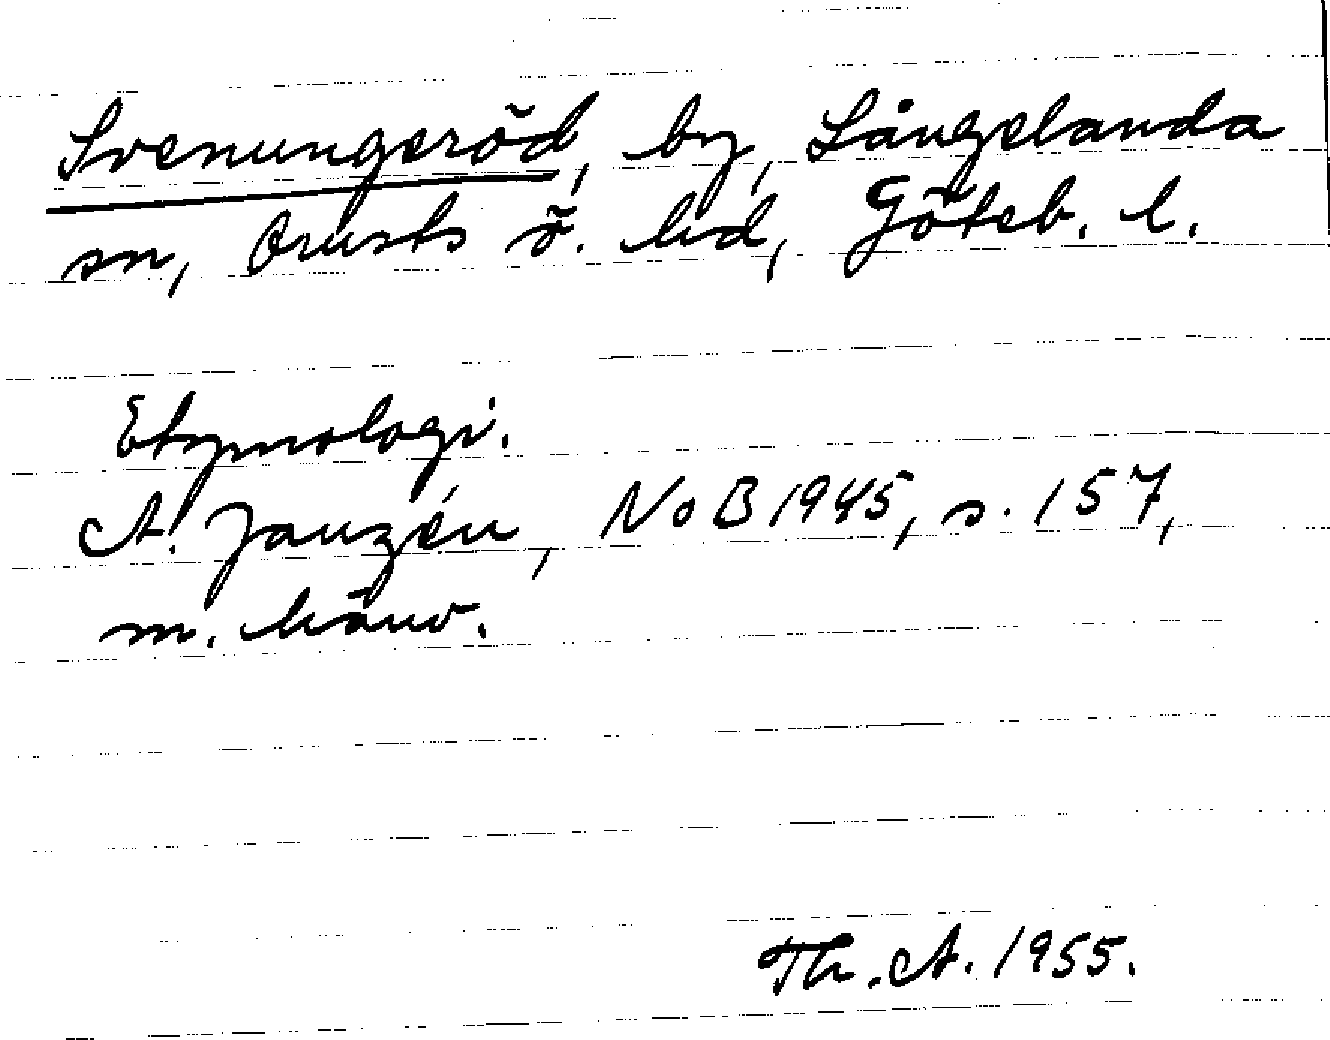 Svenungeröd, by, Långelanda
sn, Orusts ö. hd, Göteb. l.
Etymologi.
A. Janzén, NoB 1945, s. 157,
m. hänv.
Th. A. 1955.